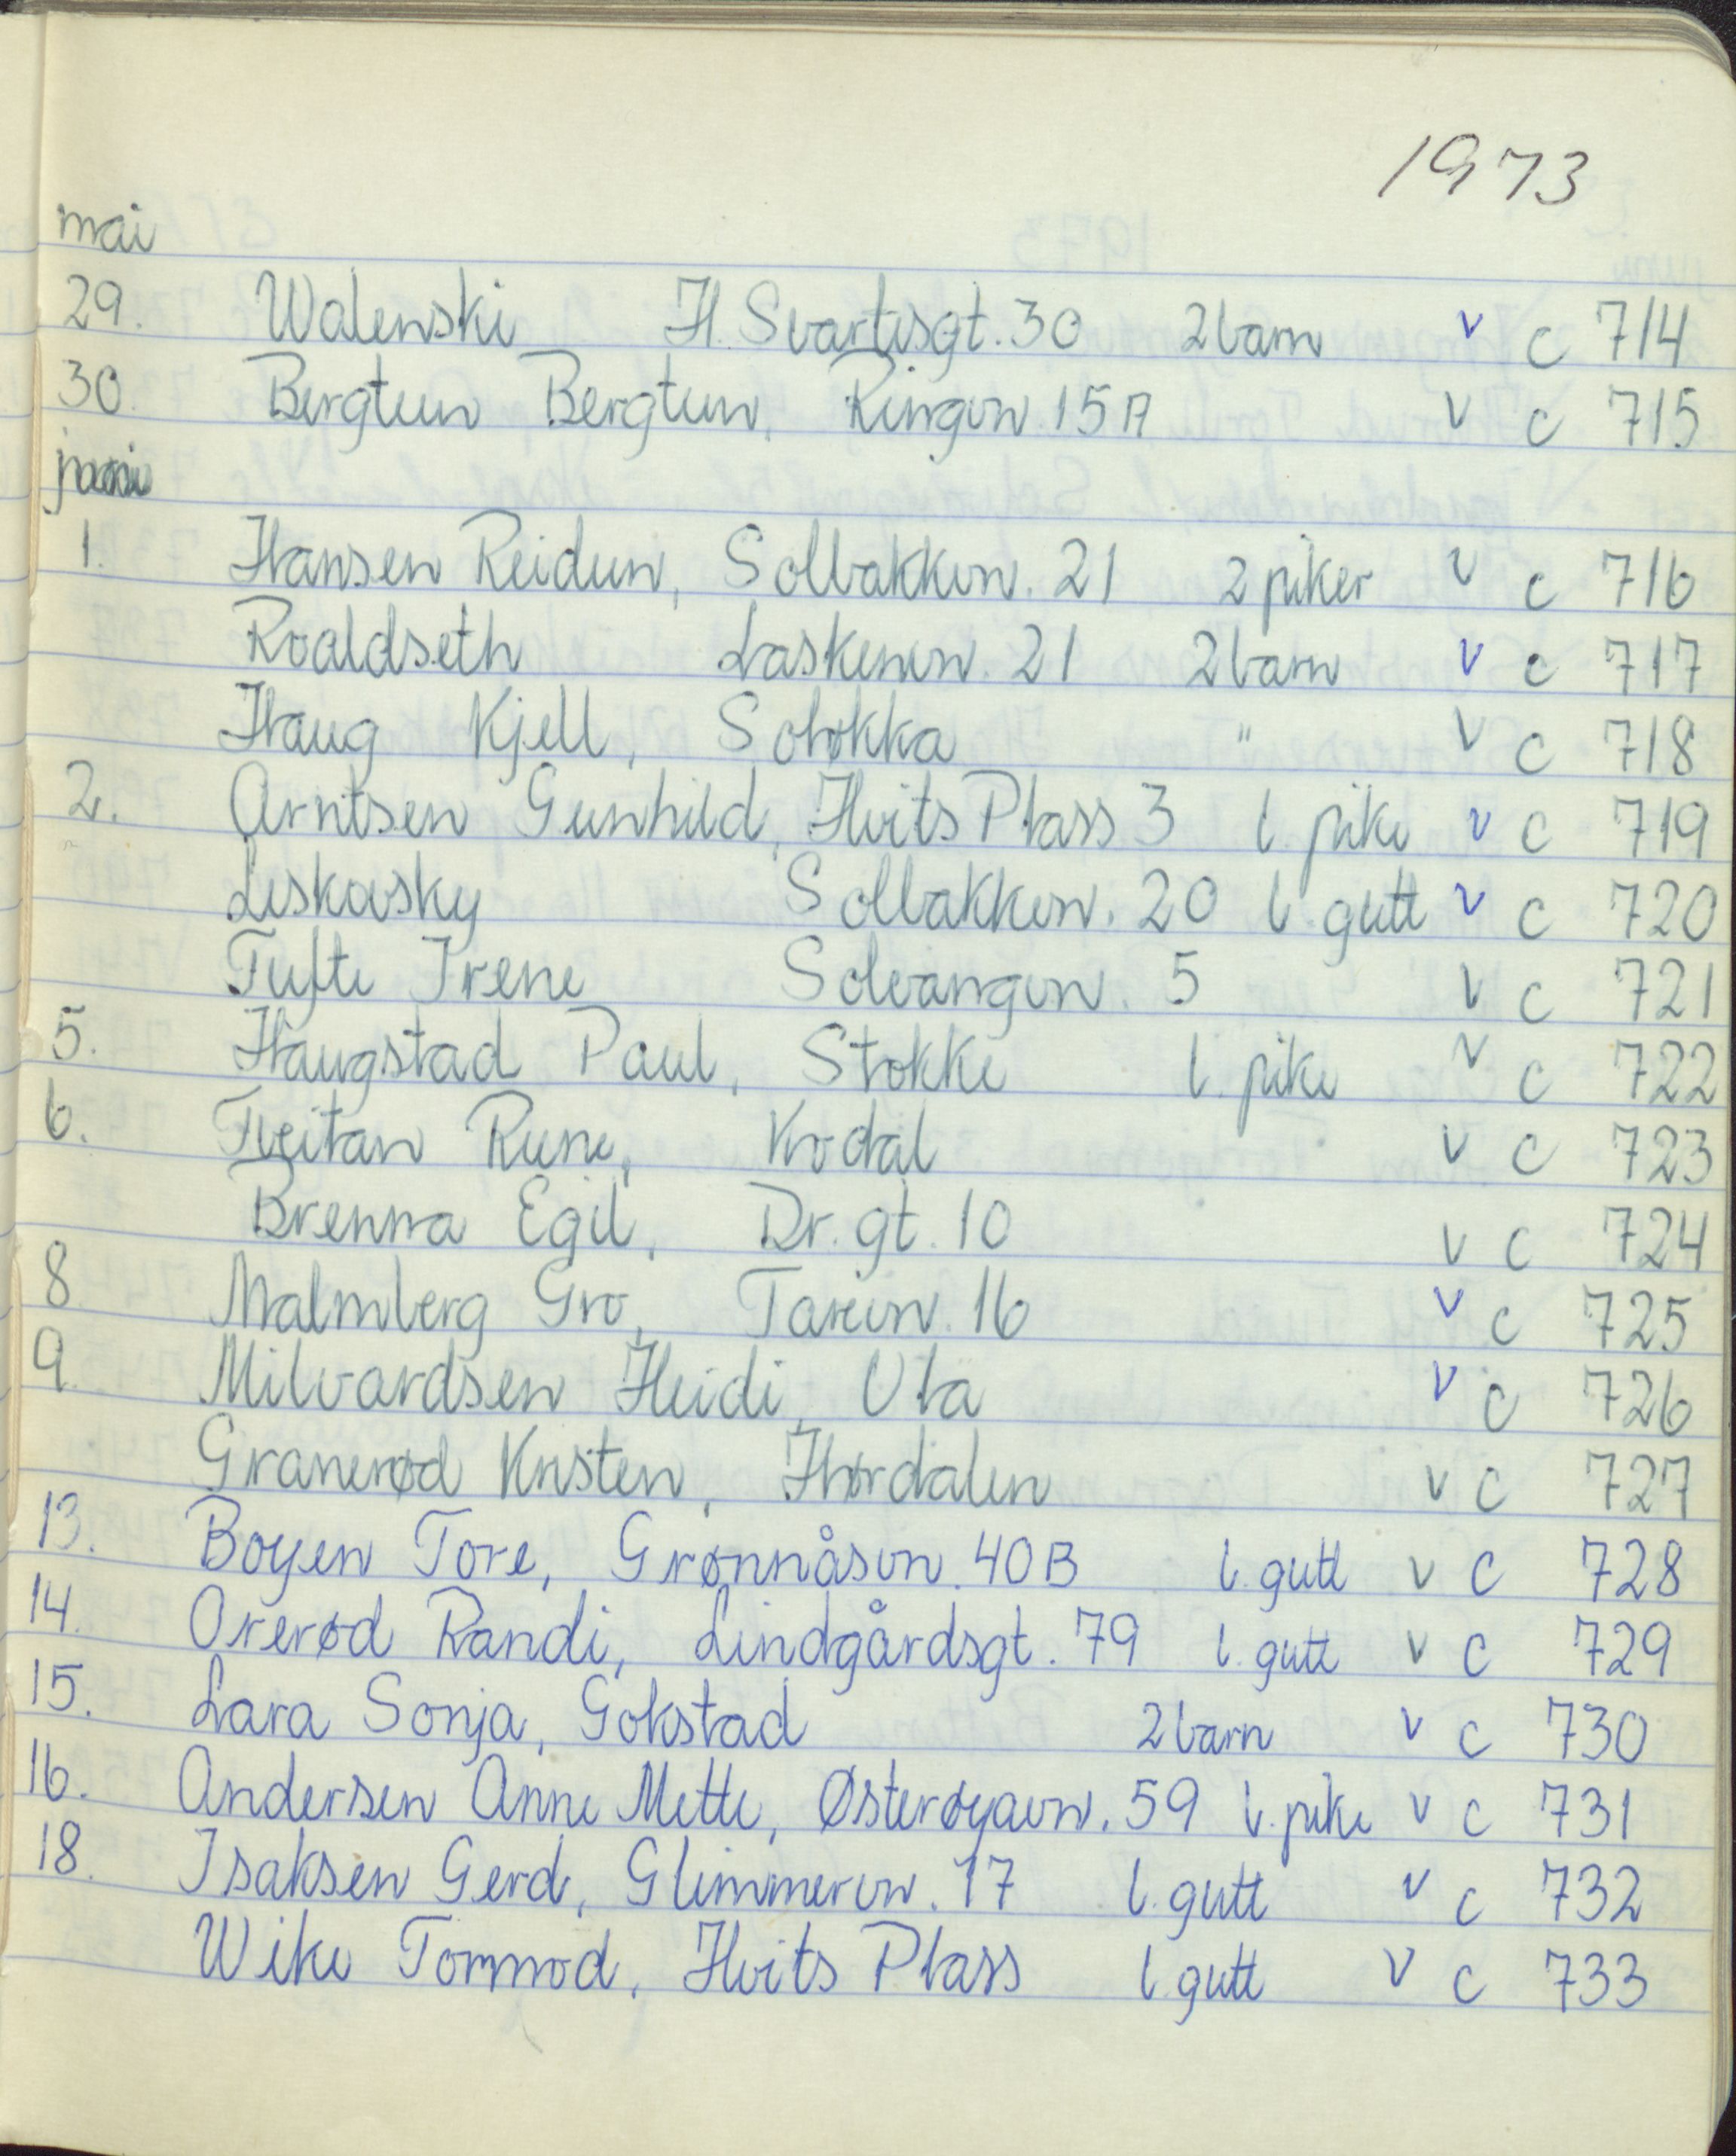 1973
mai
29. Walenski H. Svartisgt. 30 2 barn v c 714
30. Bergtun Bergtun, Ringvn. 15 A v c 715
juni
1. Hansen Reidun, Solbakkvn. 21 2 piker v c 716
Roaldseth Laskenvn. 21 2 barn v c 717
Haug Kjell, Soløkka " v c 718
2. Arntsen Gunhild, Hvits Plass 3 l. pike v c 719
Leskovsky Solbakkvn. 20 l. gutt v c 720
Tufte Irene Solvangvn. 5 v c 721
5. Haugstad Paul, Stokke l. pike v c 722
6. Tveitan Rune, Kodal v c 723
Brenna Egil, Dr. gt. 10 v c 724
8 Malmberg Gro, Tarevn. 16 v c 725
9. Milvardsen Heidi, Ula v c 726
Granerød Kristen, Hørdalen v c 727
13. Boyen Tore, Grønnåsvn. 40 B l. gutt v c 728
14. Orerød Randi, Lindgårdsgt. 79 l. gutt v c 729
15. Lara Sonja, Gokstad 2 barn v c 730
16. Andersen Anne Mette, Østerøyavn. 59 l. pike v c 731
18. Isaksen Gerd, Glimmervn. 17 l. gutt v c 732
Wike Tormod, Hvits Plass l. gutt v c 733